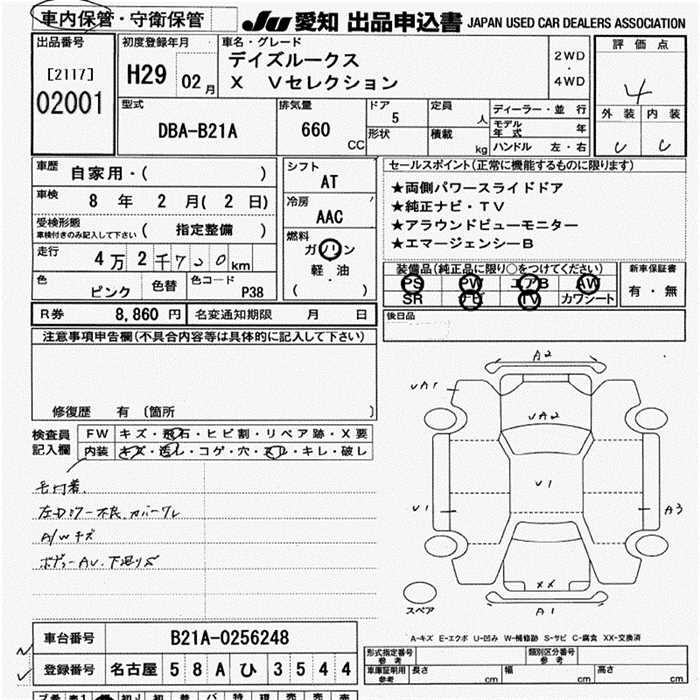 車内保管・守衛保管
JU 愛知 出品申込書 JAPAN USED CAR DEALERS ASSOCIATION
出品番号
[2117]
02001
初度登録年月
H29 02 月
車名・グレード
デイズルークス
X Vセレクション
2WD
・
4WD
評価点
4
外装 内装
型式
DBA-B21A
排気量
660
CC
ドア
5
形状
定員
人
積載
kg
ディーラー・並行
モデル年式 年
ハンドル 左・右
車歴 自家用・( )
車検 8 年 2 月( 2 日)
受検形態
車検付きのみ記入して下さい ( 指定整備 )
走行 4万 2千 7 2 0 km
色 ピンク 色替 色コード P38
シフト
AT
冷房
AAC
燃料
ガソリン
軽・油
( )
セールスポイント(正常に機能するものに限ります)
★両側パワースライドドア
★純正ナビ・TV
★アラウンドビューモニター
★エマージェンシーB
装備品(純正品に限り○をつけてください)
PS PW エアB AW
SR ナビ TV カワシート
新車保証書
有・無
R券 8,860 円 名変通知期限 月 日
後日品
注意事項申告欄(不具合内容等は具体的に記入して下さい)
修復歴 有 〔箇所 〕
検査員
記入欄
FW キズ・飛石・ヒビ割・リペア跡・X要
内装 キズ・汚レ・コゲ・穴・スレ・キレ・破レ
毛付着
A/Wキズ
A2
UA1
UA2
U1
U1
A3
XX
A1
スペア
A-キズ E-エクボ U-凹み W-補修跡 S-サビ C-腐食 XX-交換済
車台番号 B21A-0256248
登録番号 名古屋 58A ひ 3544
型式指定番号
参考
類別区分番号
参考
車庫証明用
参考
長さ cm 幅 cm 高さ cm